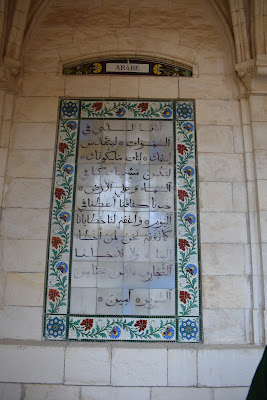 ARABE
أبانا الذي في
السموات * ليتقدس
اسمك * ليأت ملكوتك
لتكن مشيئتك كما في
السماء * وعلى الأرض *
خبزنا كفافنا أعطنا في
اليوم * واغفر لنا خطايانا
كما نغفر نحن لمن أخطأ
إلينا * ولا تدخلنا
التجارب * لكن نجنا من
الشرير * آمين *